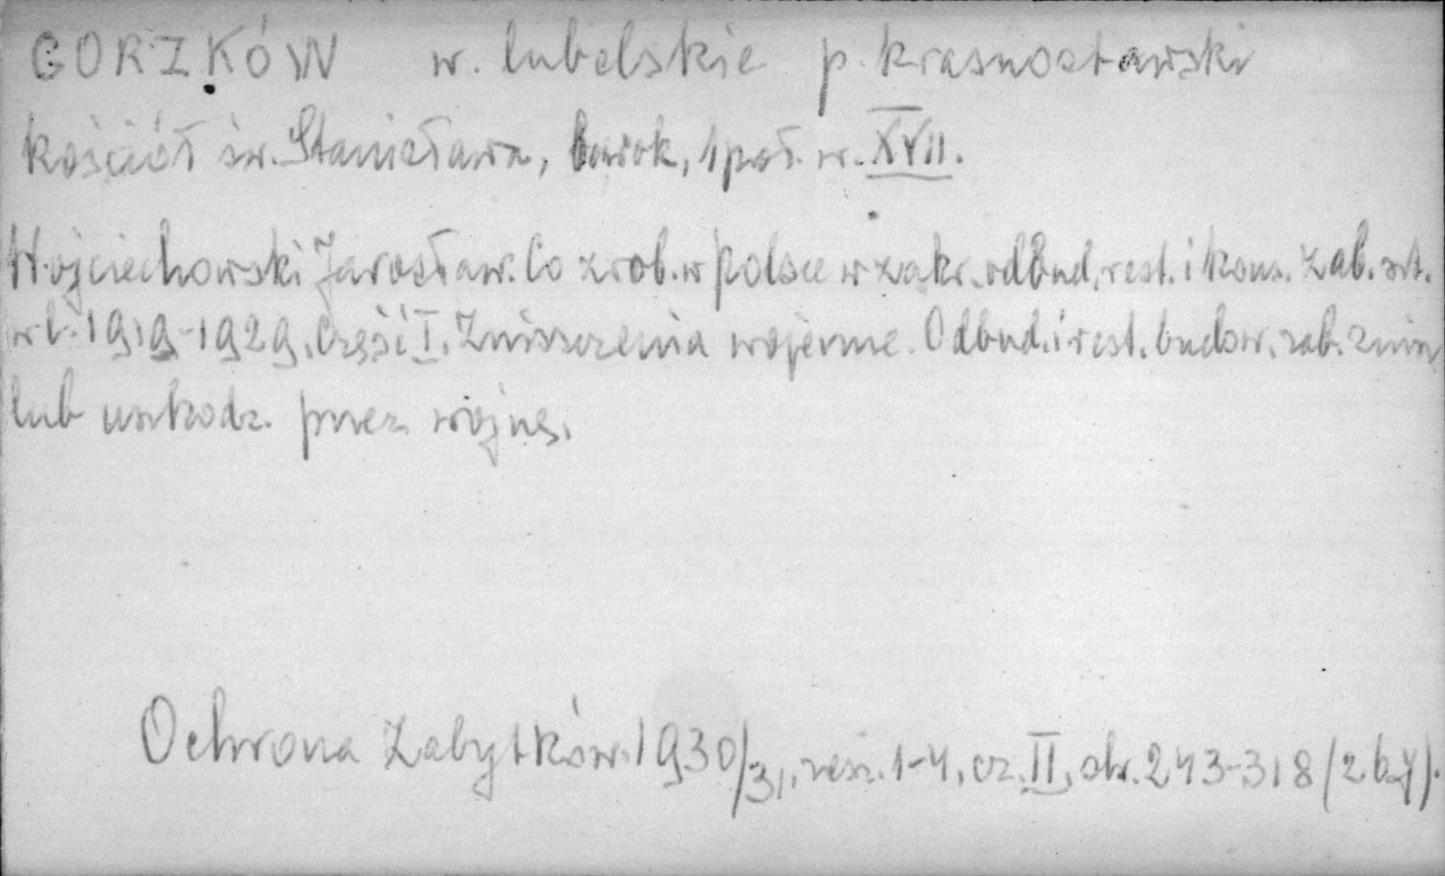 GORZKÓW w. lubelskie p. krasnostawski
kościół św. Stanisława, barok, 1 poł. w. XVII.
Wojciechowski Jarosław. Co zrob. w Polsce w zakr. odbud., rest. i kons. zab. szt.
w l. 1919-1929. Część I. Zniszczenia wojenne. Odbud. i rest. budow. zab. znisz
lub uszkodz. przez wojnę.
Ochrona Zabytków. 1930/31, zesz. 1-4, cz. II, str. 243-318